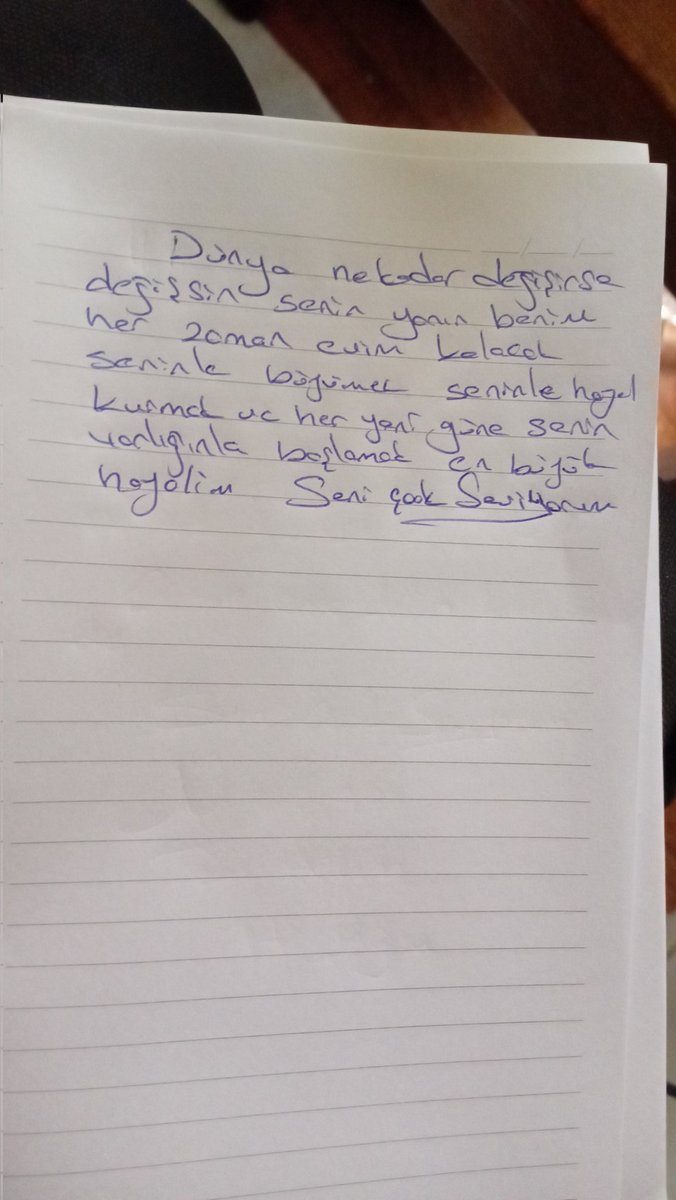 Dünya nekadar değişirse
değişsin senin yanın benim
her zaman evim kalacak
seninle büyümek seninle hayal
kurmak ve her yeni güne senin
varlığınla başlamak en büyük
hayalim Seni çook Seviyorum